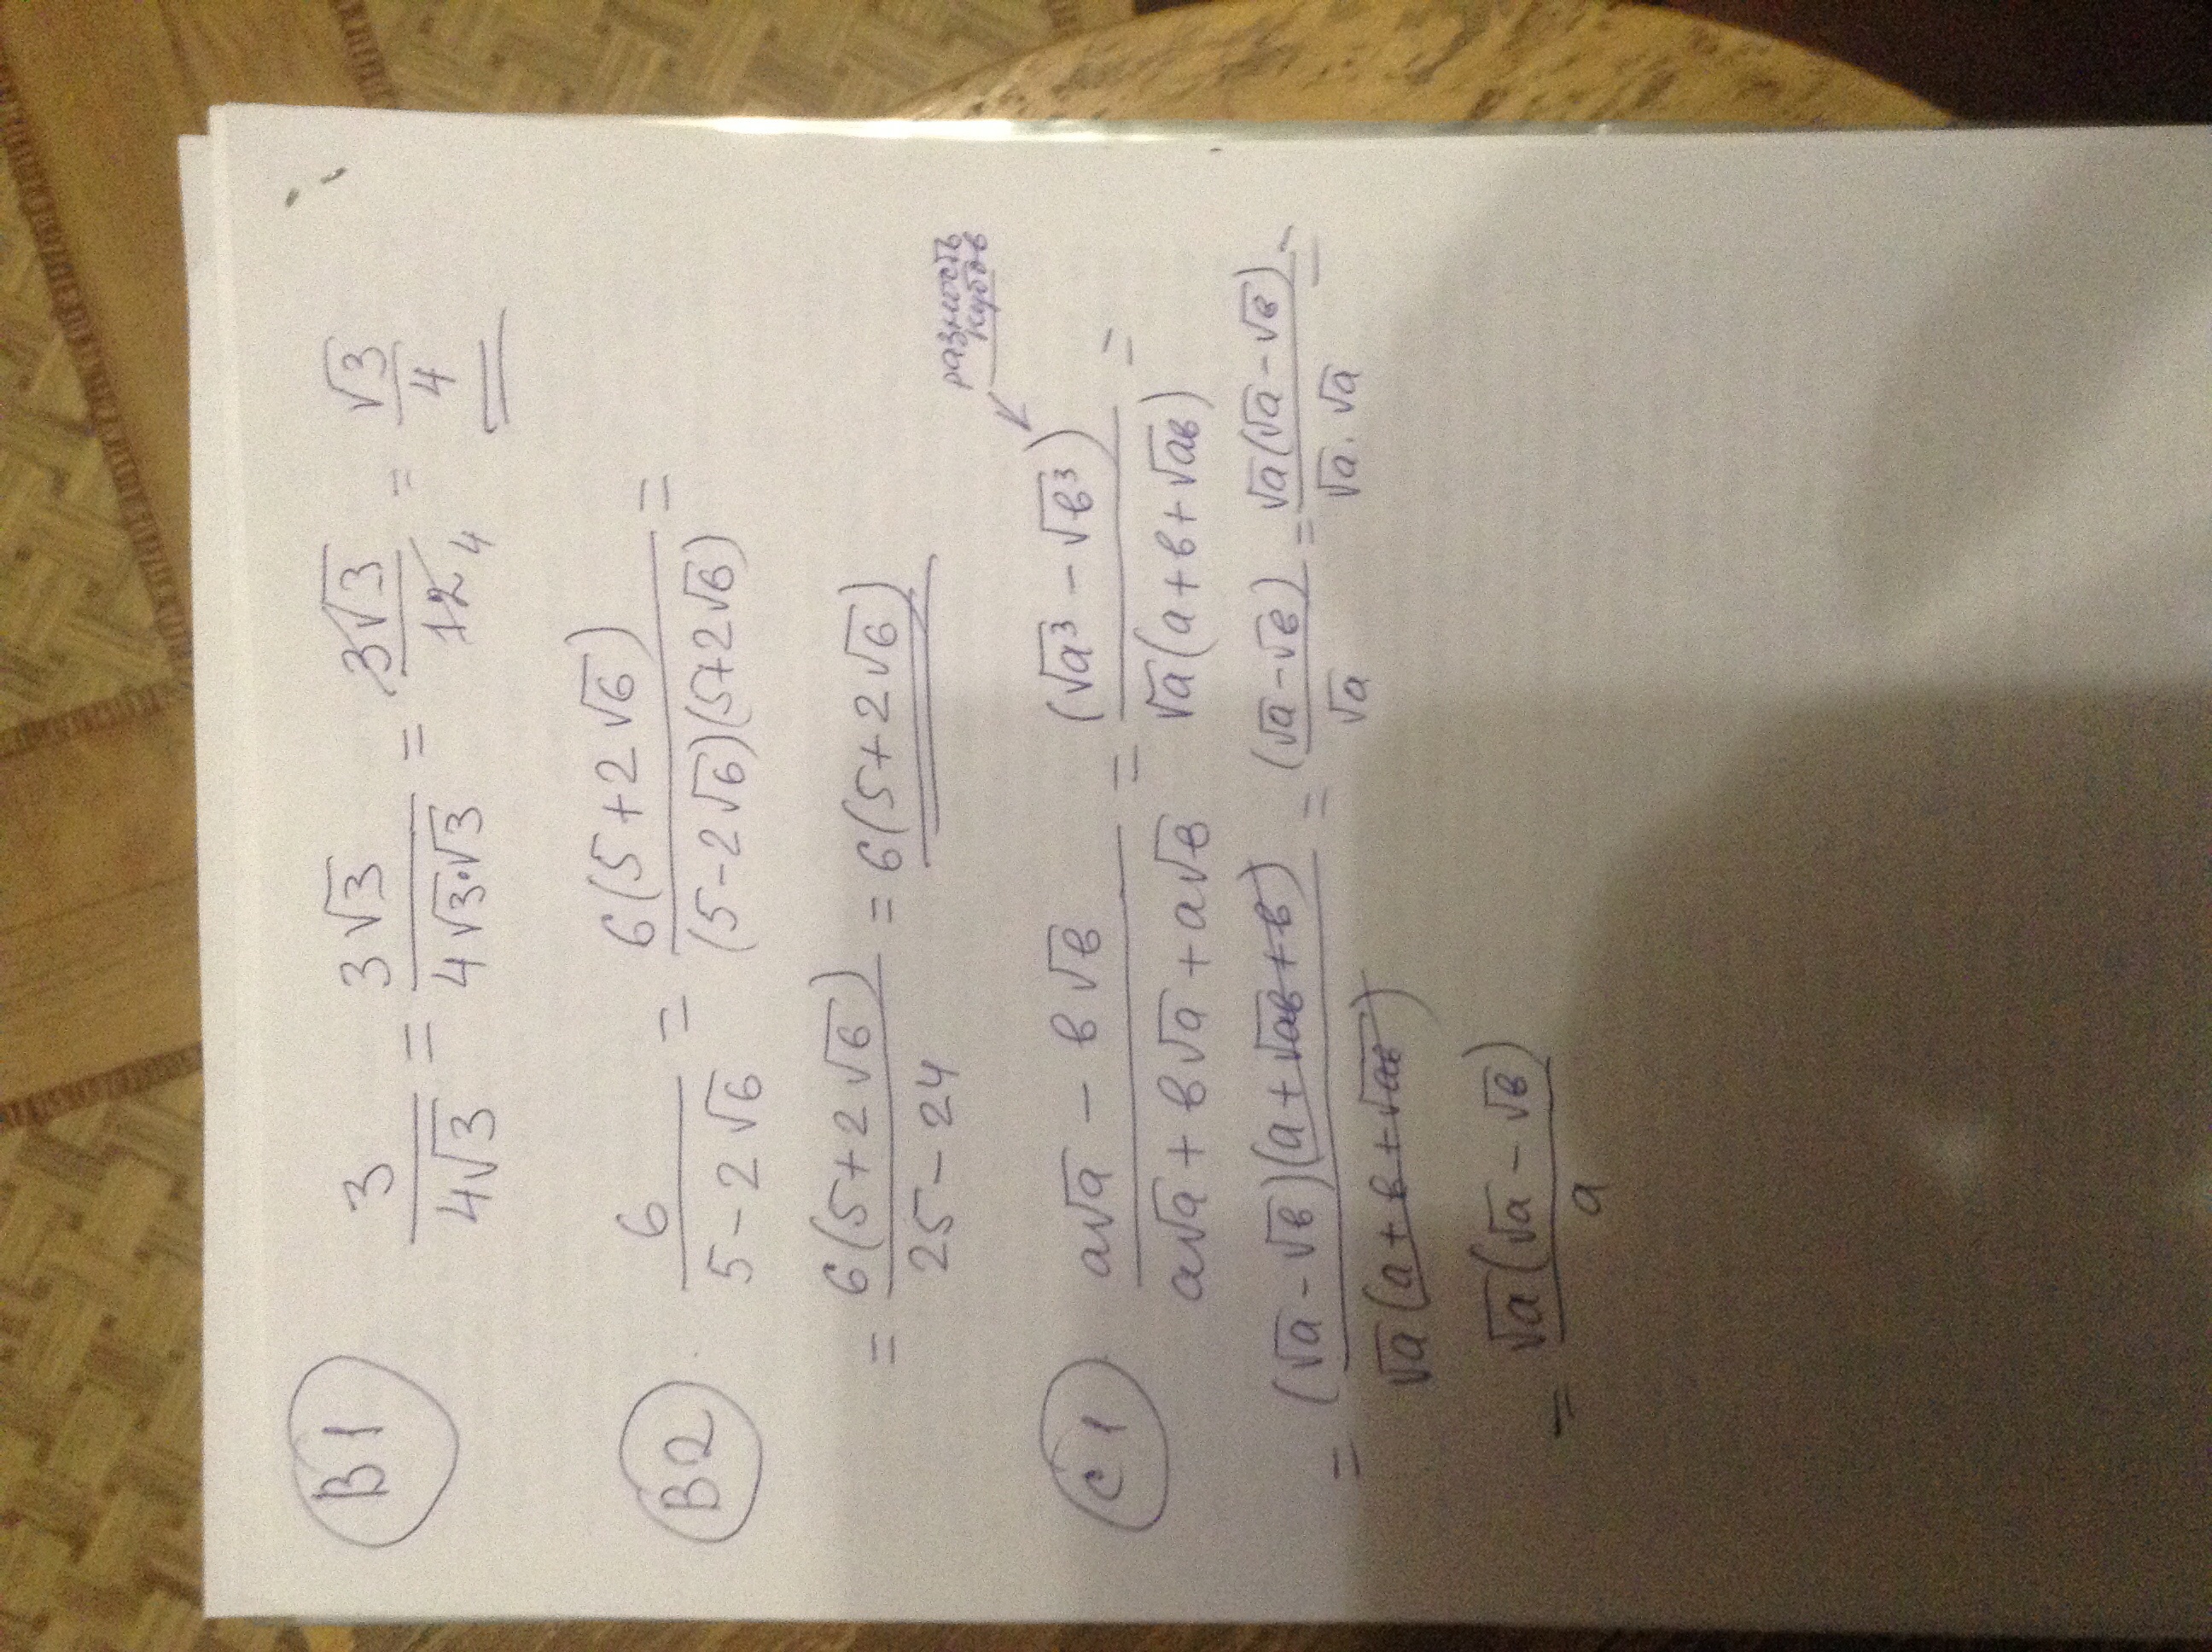 B1 3/(4√3) = 3√3/(4√3·√3) = 3√3/12 4 = √3/4
B2 6/(5-2√6) = 6(5+2√6)/((5-2√6)(5+2√6)) =
= 6(5+2√6)/(25-24) = 6(5+2√6)
разность
кубов
C1 (a√a - в√в)/(a√a + в√a + a√в) = (√a³ - √в³)/(√a(a+в+√aв)) =
= (√a - √в)(a+√aв+в)/(√a(a+в+√aв)) = (√a-√в)/√a = √a(√a-√в)/(√a·√a) =
= √a(√a-√в)/a